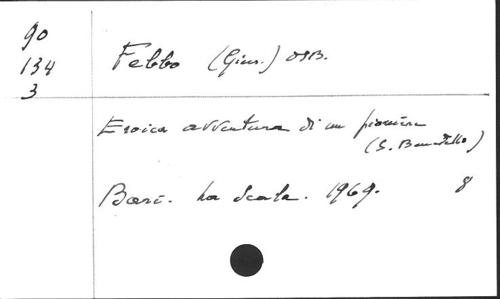 90
134
3
Febbo (Gius.) OSB.
Eroica avventura di un pioniere
(S. Benedetto)
Bari. La Scala. 1969. 8